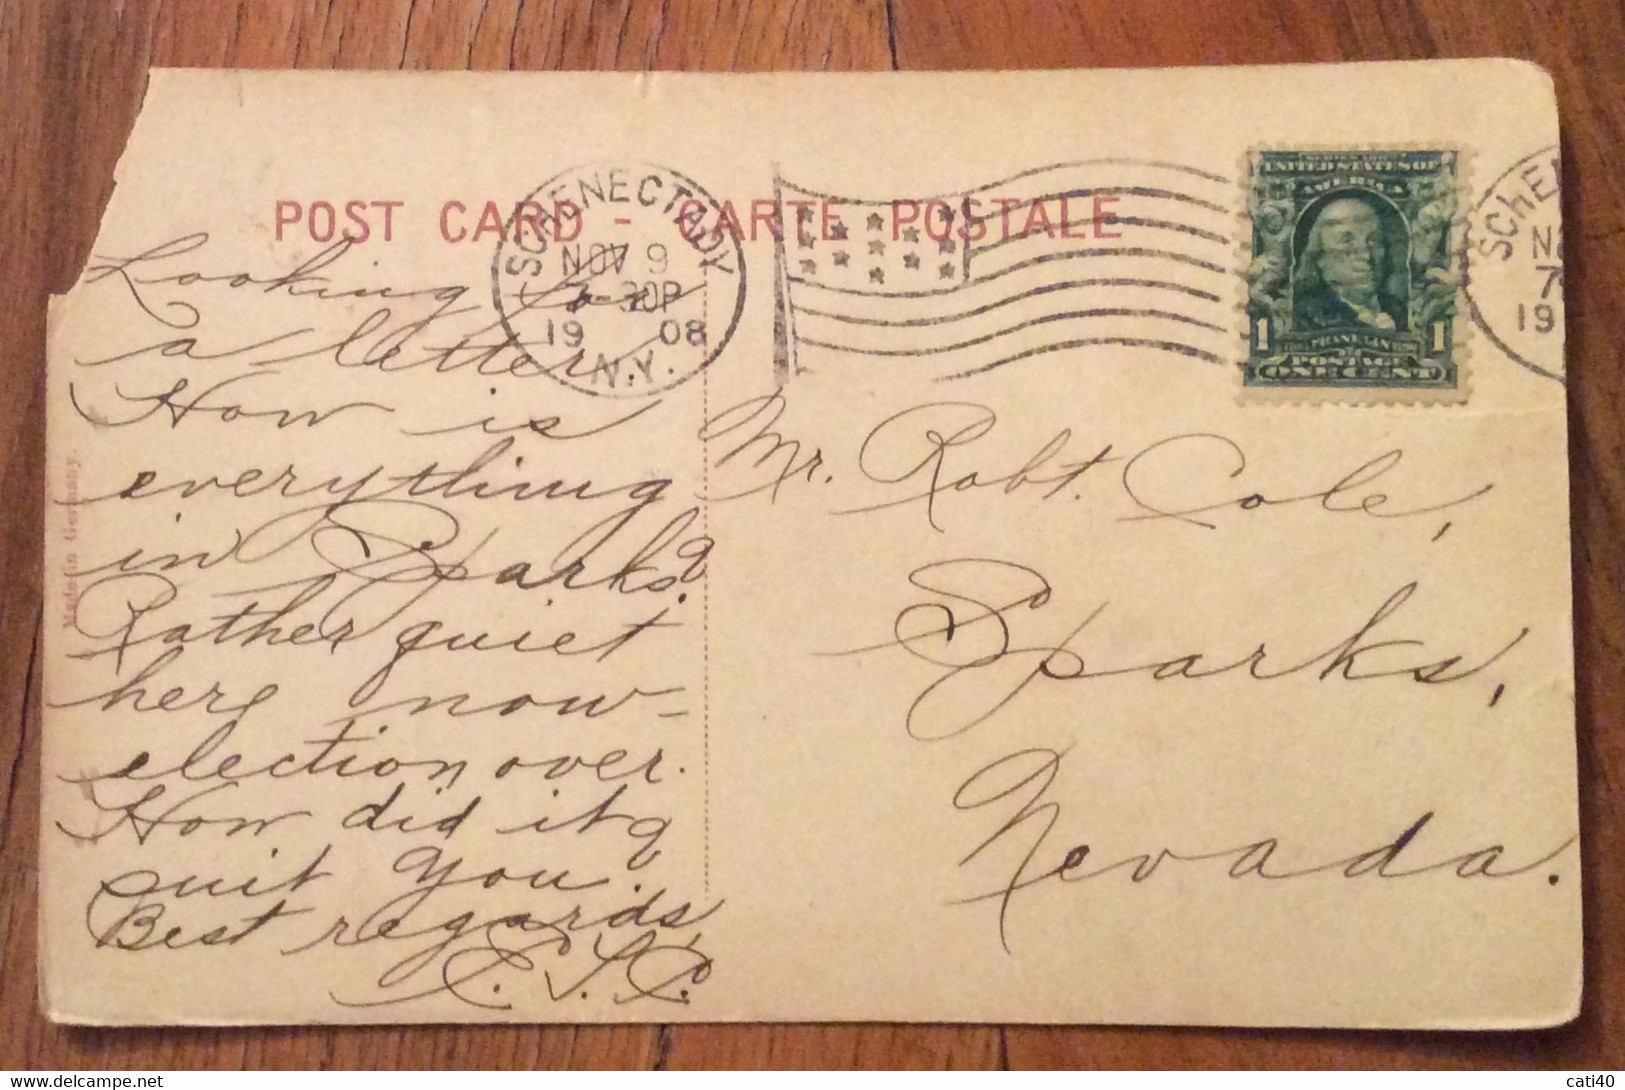 POST CARD - CARTE POSTALE
SCHENECTADY
NOV 9
7 30P
19 08
N.Y.
SERIES 1902
UNITED STATES OF
AMERICA
1 FRANKLIN 1
POSTAGE
ONE CENT
SCHE
N
7
19
Looking for
a letter.
How is
everything
in Sparks?
Rather quiet
here now -
election over.
How did it
suit you?
Best regards,
Mr. Robt. Cole,
Sparks,
Nevada.
Made in Germany.
cati40